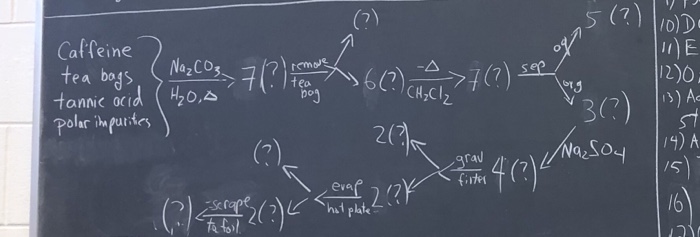 Caffeine
tea bags
tannic acid
polar impurities
Na2CO3
H2O, Δ
7(?)
remove
tea
bag
(?)
6(?)
-Δ
CH2Cl2
7(?)
sep
aq
5(?)
org
3(?)
Na2SO4
4(?)
grav
filter
2(?)
2(?)
evap
hot plate
(?)
2(?)
scrape
(?)
10) D
11) E
12) O
13) Ac
st
14) A
15)
16)